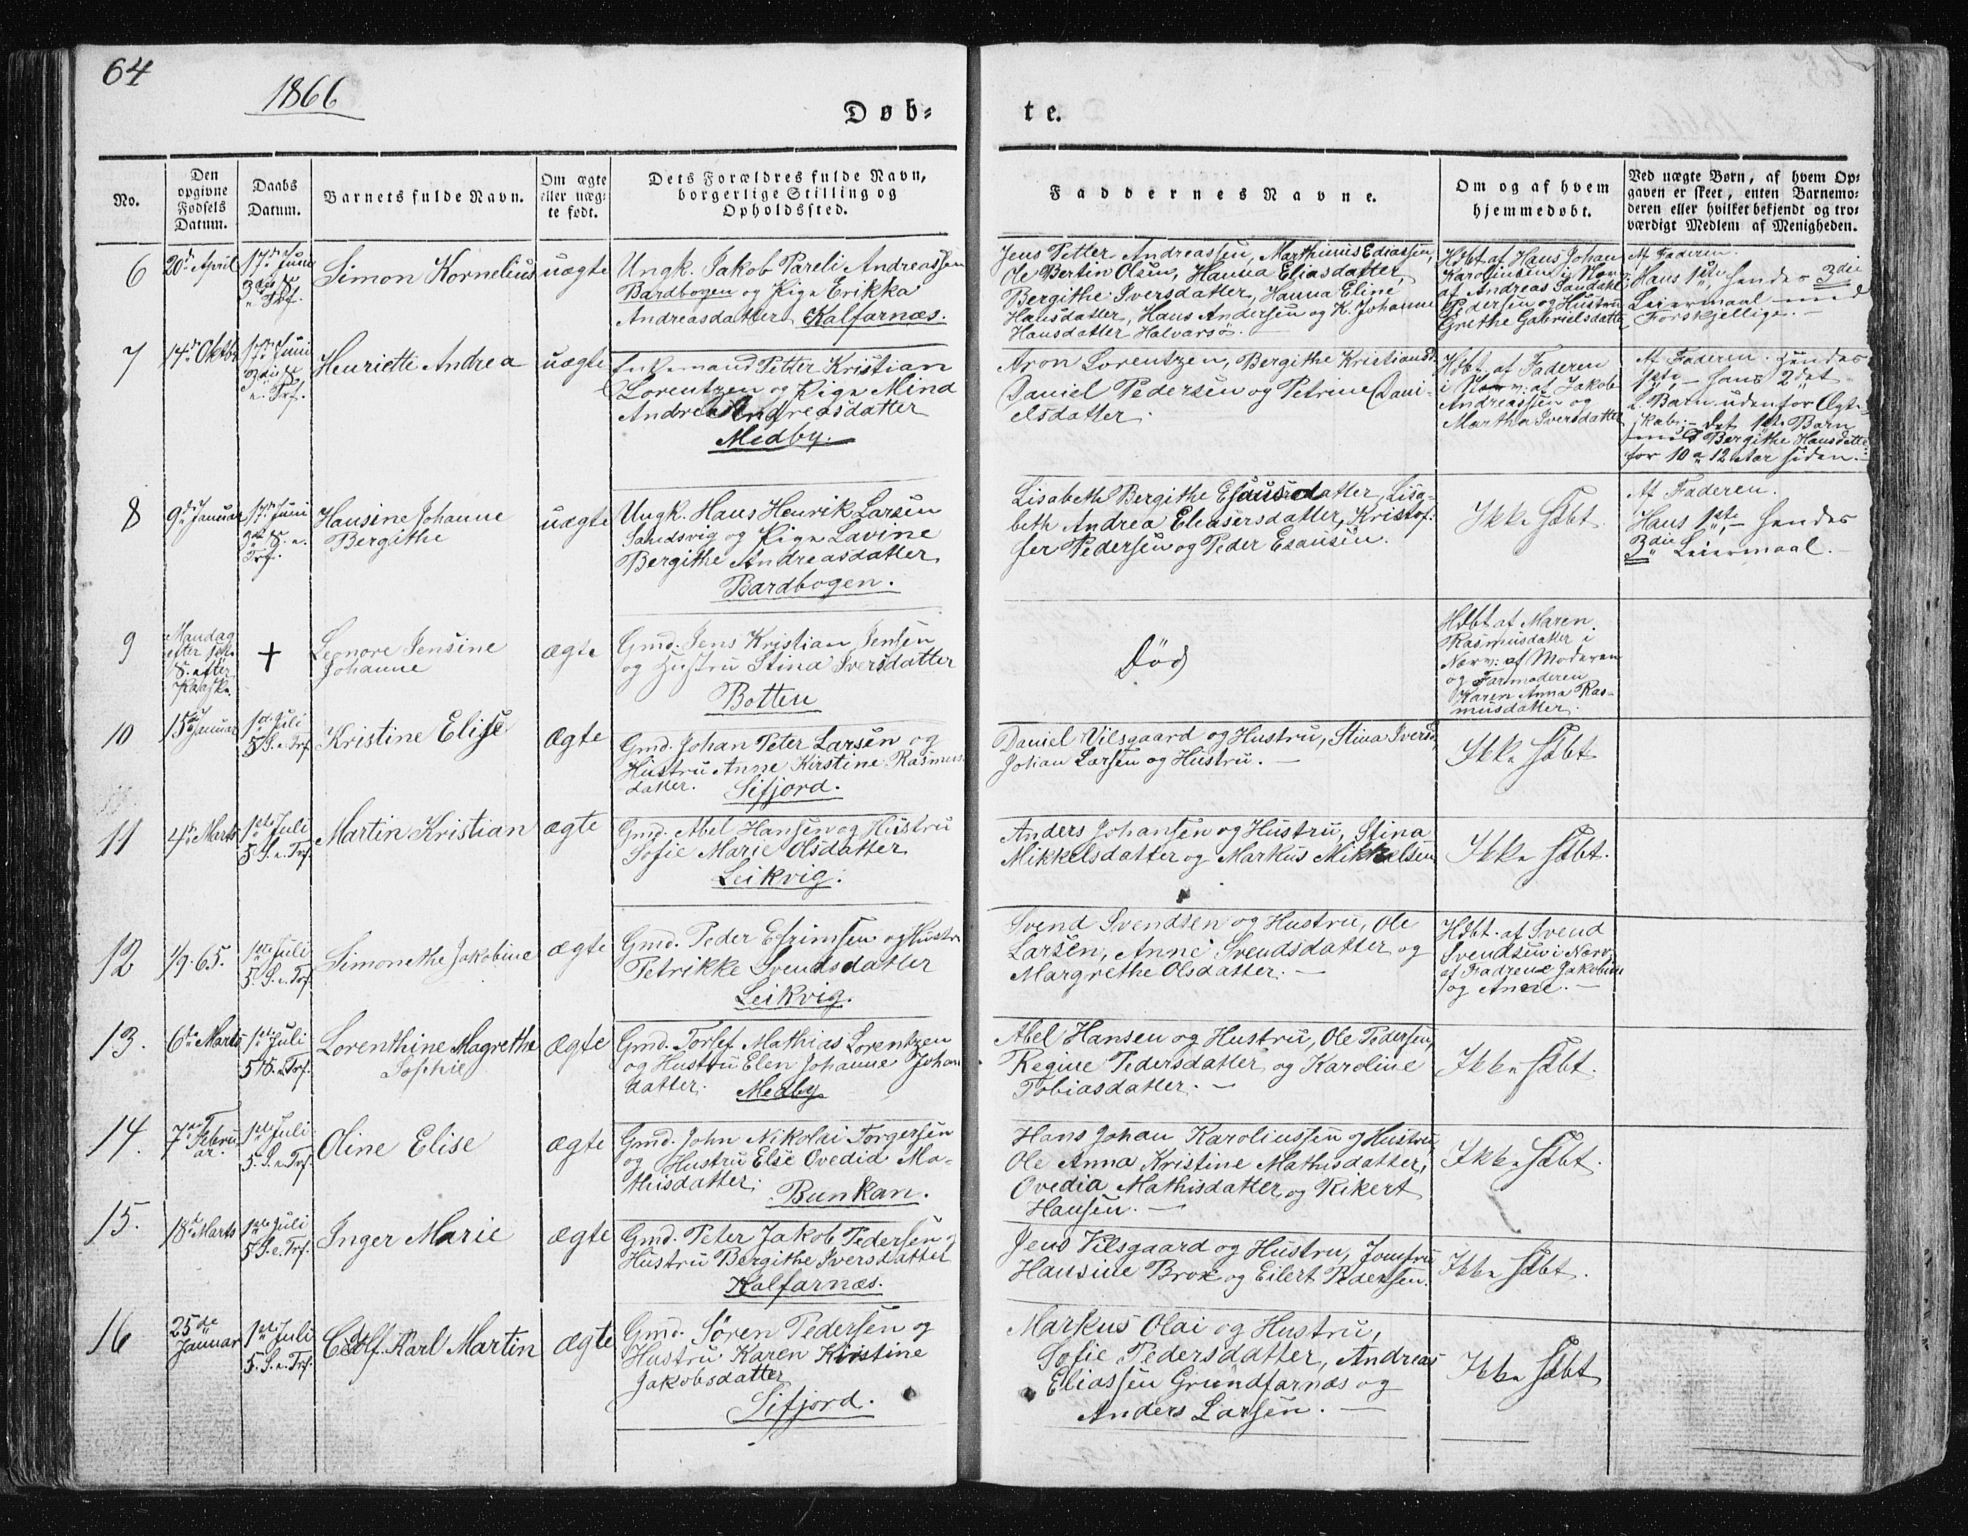 64
1866
Døb-
te.
No.
Den opgivne Fødsels Datum.
Daabs Datum.
Barnets fulde Navn.
Om ægte eller uægte født.
Dets Forældres fulde Navn, borgerlige Stilling og Opholdssted.
Faddernes Navne.
Om og af hvem hjemmedøbt.
Ved uægte Børn, af hvem Opgaven er skeet, enten Barnemoderen eller hvilket bekjendt og troværdigt Medlem af Menigheden.
6
20de April
17de Juni
3die S.
e. Trf.
Simon Kornelius
uægte
Ungk. Jakob Pareli Andreassen
Bardbogen og Pige Erikka
Andreasdatter, Kalfarnæs.
Jens Petter Andreassen, Marthinus Ediassen,
Ole Bertin Olsen, Hanna Eliasdatter,
Bergithe Iversdatter, Hanna Eline
Hansdatter, Hans Andersen og K. Johanne
Hansdatter Halvarsø.
Hdbt af Hans Johan
Karoliussen i Nærv.
af Andreas Sandahl
Pedersen og Hustru
Grethe Gabrielsdatter
Af Faderen.
Hans 1ste, hendes 3die
Leiermaal med
Forskjellige.
7
14de Oktbr
17de Juni
3die S.
e. Trf.
Henriette Andrea
uægte
Enkemand Petter Kristian
Lorentzen og Pige Mind
Andrea Andreasdatter
Medby.
Aron Lorentzen, Bergithe Kristiansd.
Daniel Pedersen og Petrine Dani-
elsdatter.
Hdbt. af Faderen
i Nærv. af Jakob
Andreassen og
Martha Iversdatter
Af Faderen. Hendes
1ste, – hans 2det
Barn udenfor Ægte-
skab; – det 1ste Barn
med Bergithe Hansdatter
for 10 a 12 Aar siden.
8
9de Januar
17de Juni
3die S. e.
Trf.
Hansine Johanne
Bergithe
uægte
Ungk. Hans Henrik Larsen
Sandsvig og Pige Lavine
Bergithe Andreasdatter
Bardbogen.
Lisabeth Bergithe Esausdatter, Lisa-
beth Andrea Eleasersdatter, Kristof-
fer Pedersen og Peder Esausen.
Ikke Hdbt
Af Faderen.
Hans 1ste – hendes
3die Leiermaal.
9
Mandag
efter
S. efter
Paaske.
+
Leonore Jensine
Johanne
ægte
Gmd. Jens Kristian Jensen
og Hustru Stina Iversdatter
Botten
Død
Hdbt af Maren
Rasmusdatter i
Nærv. af Moderen
og Farmoderen
Karen Anna Ras-
musdatter.
10
15de Januar
1ste Juli
5 S. e. Trf.
Kristine Elise
Ægte
Gmd. Johan Peter Larsen og
Hustru Anne Kirstine Rasmus
datter. Sifjord.
Daniel Vilsgaard og Hustru, Stina Iversd.
Johan Larsen og Hustru.
Ikke Hdbt
11
4de Marts
1ste Juli
5 S. e. Trf.
Martin Kristian
ægte
Gmd. Abel Hansen og Hustru
Sofie Marie Olsdatter
Leikvig.
Anders Johansen og Hustru, Stina
Mikkelsdatter og Markus Mikkelsen
Ikke Hdbt.
12
1/9. 65.
1ste Juli
5. S. e. Trf.
Simonethe Jakobine
ægte
Gmd. Peder Efrimsen og Hustru
Petrikke Svendsdatter
Leikvig.
Svend Svendsen og Hustru, Ole
Larsen, Anne Svendsdatter og
Margrethe Olsdatter.
Hdbt. af Svend
Svendsen i Nærv.
af Fadrene Jakobine
og Anne.
13.
6te Marts
1ste Juli
5 S. e. Trf.
Lorenthine Magrethe
Sophie
ægte
Gmd. Torlef Mathias Lorentzen
og Hustru Elen Johanne Johan
datter. Medby
Abel Hansen og Hustru, Ole Pedersen,
Regine Pedersdatter og Karoline
Tobiasdatter.
Ikke Hdbt.
14.
7de Febru
ar.
1ste Juli
5. S. e. Trf.
Oline Elise
ægte
Gmd. John Nikolai Torgersen
og Hustru Else Ovedia Ma-
thisdatter. Bunkan.
Hans Johan Karoliussen og Hustru,
Ole Anna Kristine Mathisdatter,
Ovedia Mathisdatter og Rikert
Hansen.
Ikke Hdbt.
15.
18de Marts
1ste Juli
5 S. e. Trf.
Inger Marie
ægte
Gmd. Peter Jakob Pedersen og
Hustru Bergithe Iversdatter
Kalfarnæs.
Jens Vilsgaard og Hustru, Jomfru
Hansine Brox og Eilert Pedersen.
Ikke Hdbt.
16
25de
Januar
1ste Juli
5. S. e. Trf.
Karl Martin
ægte
Gmd. Søren Pedersen og
Hustru Karen Kirstine
Jakobsdatter
Sifjord.
Markus Olai og Hustru,
Sofie Pedersdatter, Andreas
Eliassen Grundfarnæs og
Anders Larsen.
Ikke Hdbt